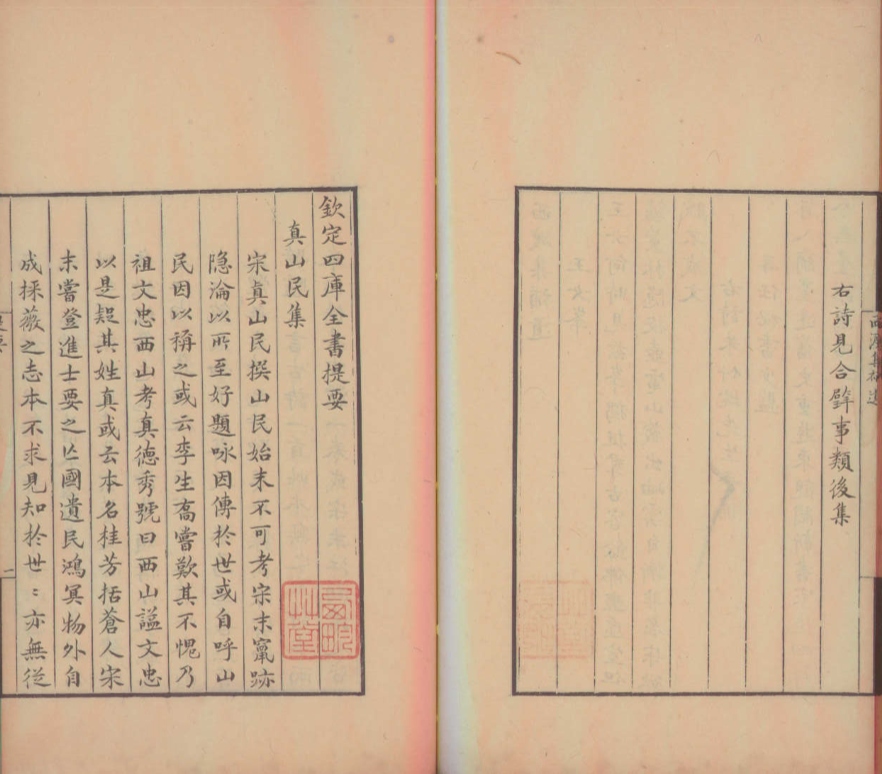 右詩見合璧事類後集
欽定四庫全書提要
真山民集
宋真山民撰山民始末不可考宋末竄跡
隐淪以所至好題咏因傳於世或自呼山
民因以稱之或云李生喬嘗歎其不愧乃
祖文忠西山考真德秀號曰西山諡文忠
以是疑其姓真或云本名桂芳括蒼人宋
末嘗登進士要之亡國遺民鴻冥物外自
成採薇之志本不求見知於世〻亦無從